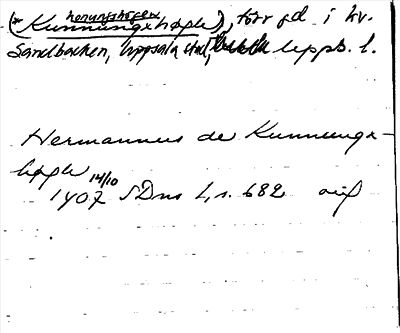 konungshögen
(*Kunnungxhøgh), förr gd i kv.
Sandbacken, Uppsala stad, Upps. l.
Hermannus de Kunnungx-
høgh 14/10
1407 SDns 1, s. 682 avs